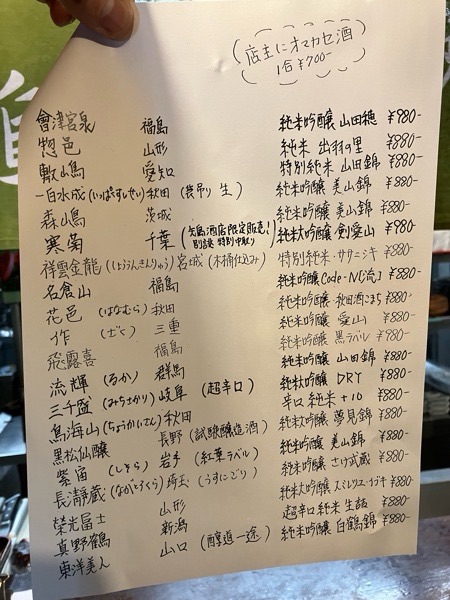 店主にオマカセ酒
1合¥700-
會津宮泉 福島 純米吟醸 山田穂 ¥980-
惣邑 山形 純米 出羽の里 ¥880-
敷嶋 愛知 特別純米 山田錦 ¥880-
一白水成(いっぱくすいせい) 秋田 (袋吊り 生) 純米吟醸 美山錦 ¥880-
森嶋 茨城 純米吟醸 美山錦 ¥880-
寒菊 千葉 (矢島酒店限定販売! 別誂 特別中取り) 純米大吟醸 剣愛山 ¥980-
祥雲金龍 (しょううんきんりゅう) 宮城 (木桶仕込み) 特別純米 ササニシキ ¥880-
名倉山 福島 純米吟醸 Code-N ¥880-
花邑 (はなむら) 秋田 純米吟醸 秋田酒こまち ¥880-
作 (ざく) 三重 純米吟醸 愛山 ¥880-
飛露喜 福島 純米吟醸 黒ラベル ¥980-
流輝 (るか) 群馬 純米吟醸 山田錦 ¥880-
三千盛 (みちさかり) 岐阜 (超辛口) 純米大吟醸 DRY ¥880-
鳥海山 (ちょうかいさん) 秋田 辛口純米 +10 ¥880-
黒松仙醸 長野 (試験醸造酒) 純米大吟醸 夢見錦 ¥880-
紫宙 (しそら) 岩手 (紅葉ラベル) 純米吟醸 美山錦 ¥880-
長瀞蔵 (ながとろくら) 埼玉 (うすにごり) 純米吟醸 さけ武蔵 ¥880-
栄光冨士 山形 純米大吟醸 ¥880-
真野鶴 新潟 超辛口純米 生詰 ¥880-
東洋美人 山口 (醇道一途) 純米吟醸 白鶴錦 ¥880-